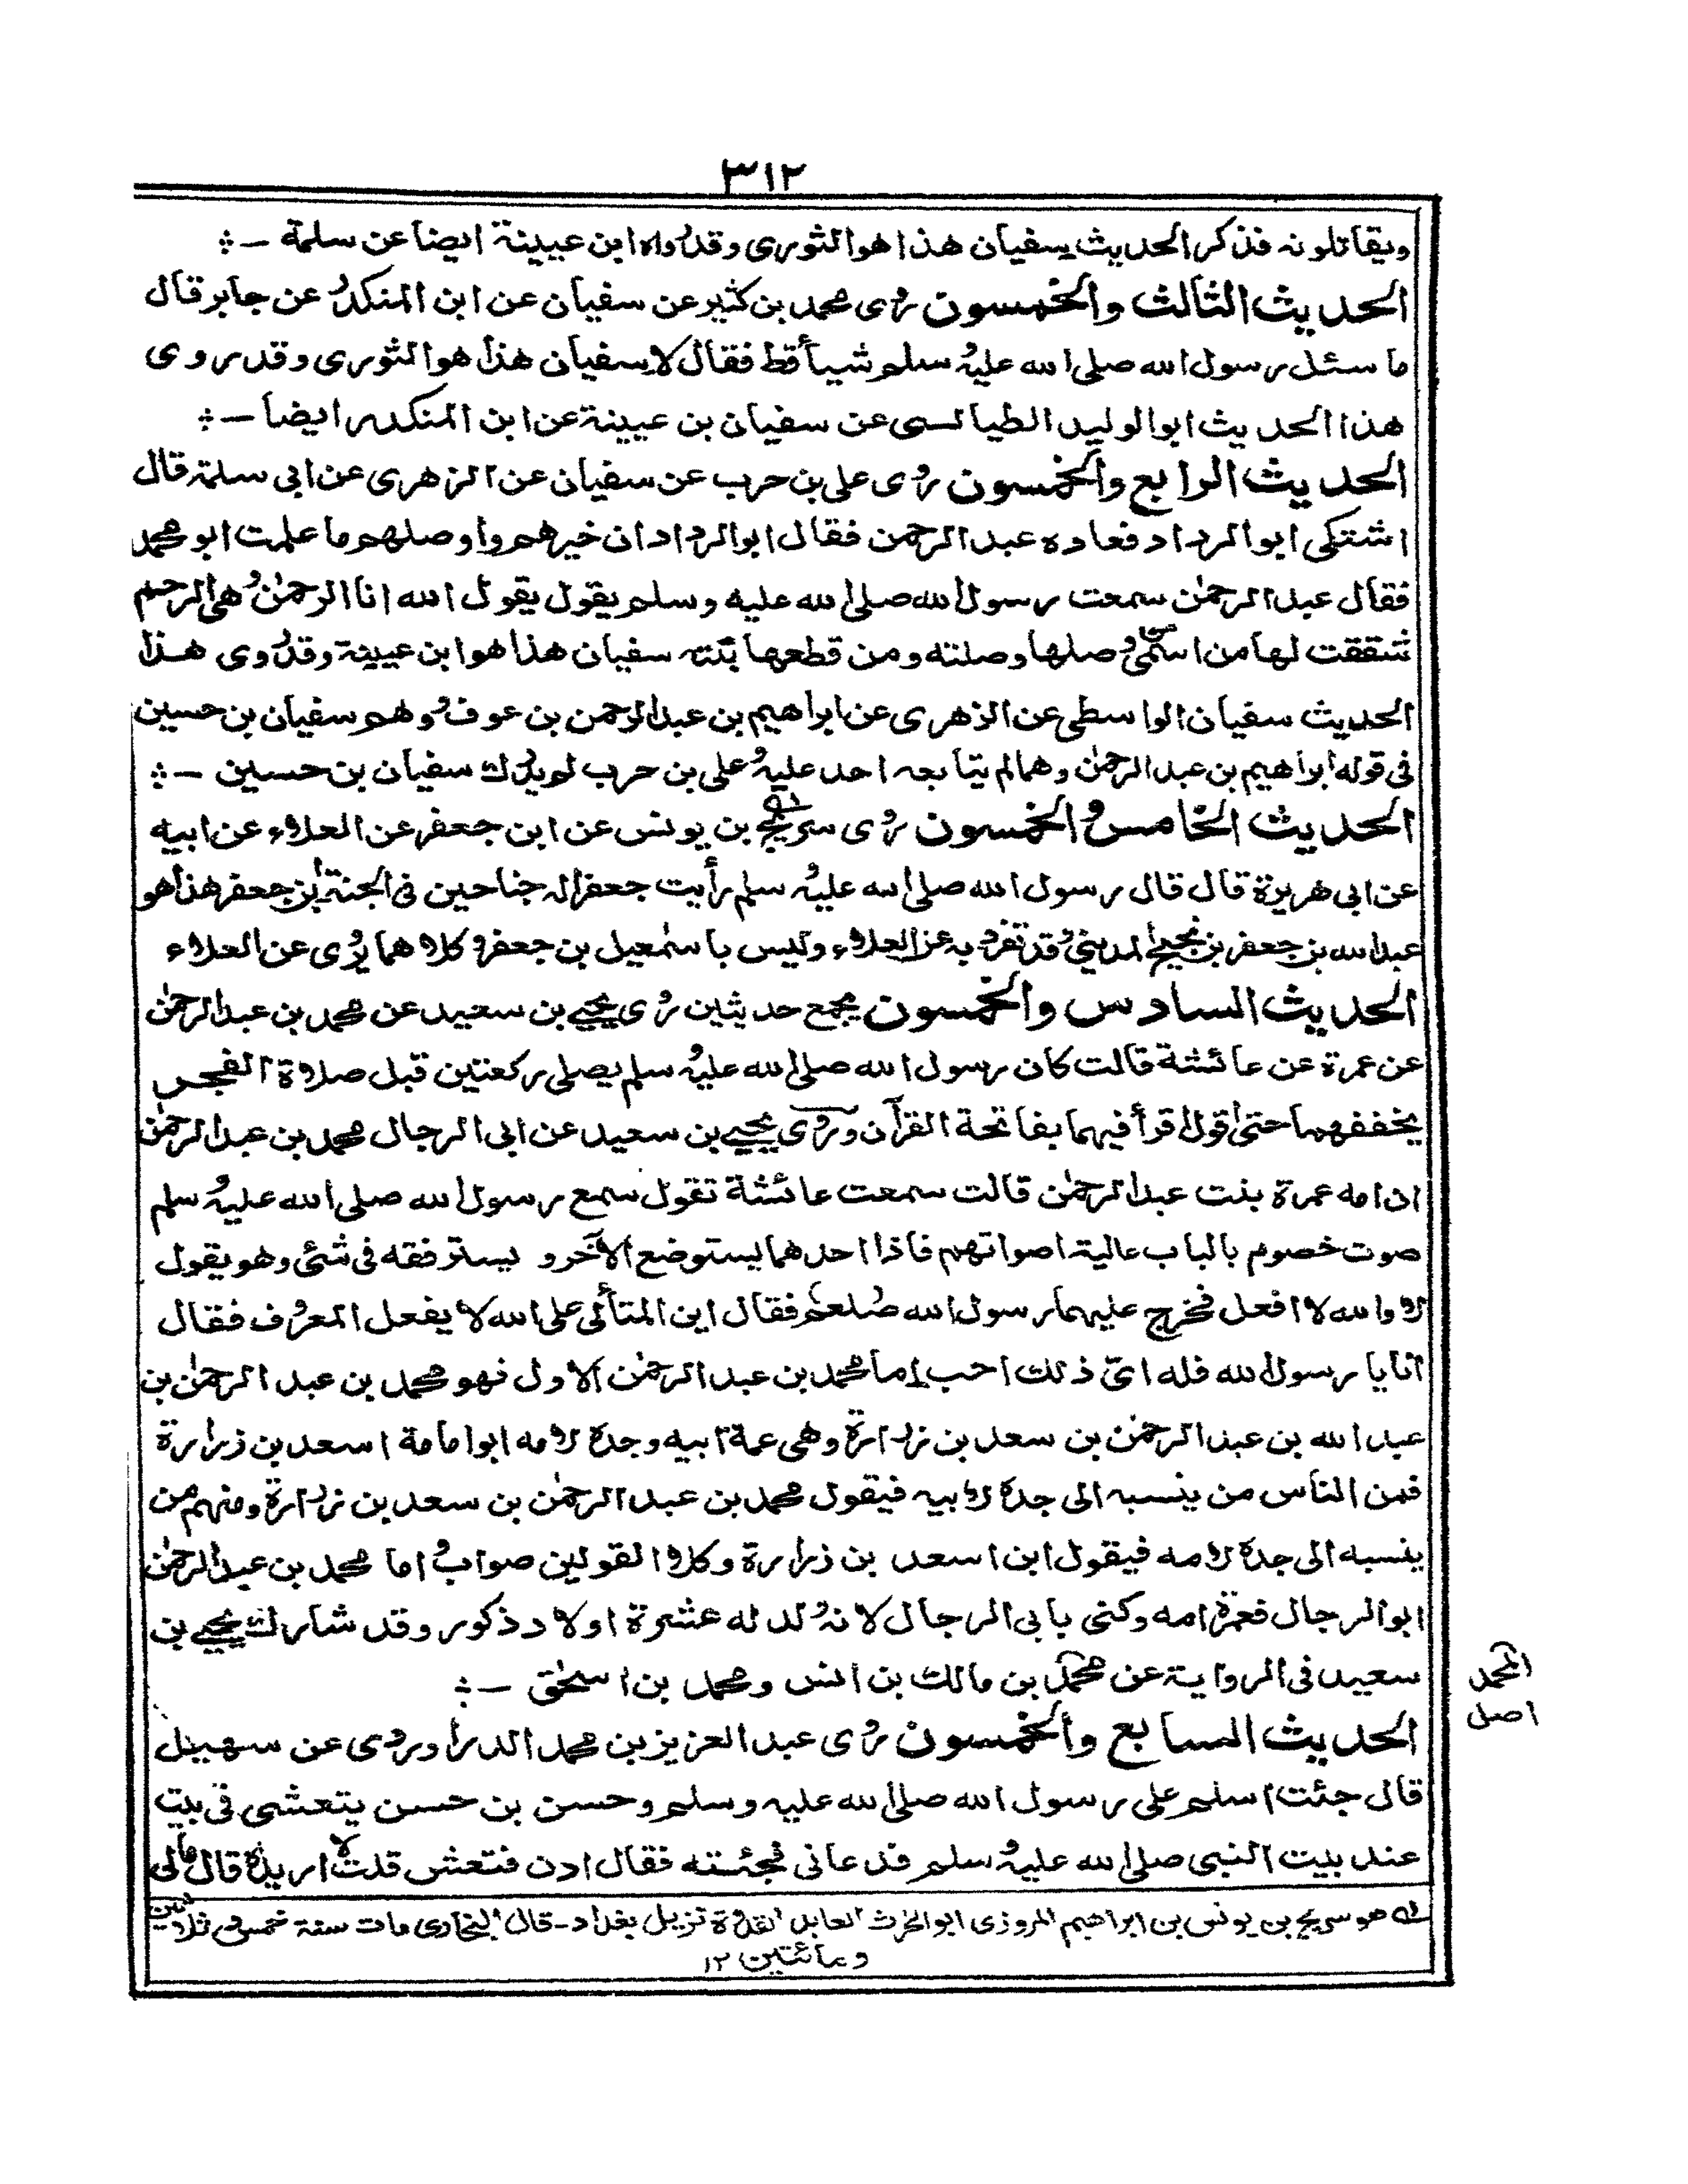 ٣١٢
ويقاتلونه فذكر الحديث سفيان هذا هو الثورى وقد رواه ابن عيينة ايضا عن سلمة -
الحديث الثالث والخمسون روى محمد بن كثير عن سفيان عن ابن المنكدر عن جابر قال
ما سئل رسول الله صلى الله عليه وسلم شيأ قط فقال لا سفيان هذا هو الثورى وقد روى
هذا الحديث ابو الوليد الطيالسى عن سفيان بن عيينة عن ابن المنكدر ايضا -
الحديث الرابع والخمسون روى على بن حرب عن سفيان عن الزهرى عن ابى سلمة قال
اشتكى ابو الرداد فعاده عبد الرحمن فقال ابو الرداد ان خيرهم واوصلهم ما علمت ابو محمد
فقال عبد الرحمٰن سمعت رسول الله صلى الله عليه وسلم يقول يقول الله انا الرحمٰن وهى الرحم
شققت لها من اسمى من وصلها وصلته ومن قطعها بتته سفيان هذا هو ابن عيينة وقد روى هذا
الحديث سفيان الواسطى عن الزهرى عن ابراهيم بن عبد الرحمن بن عوف ووهم سفيان بن حسين
فى قوله ابراهيم بن عبد الرحمٰن وهما لم يتابعه احد عليه وعلى بن حرب لم يدرك سفيان بن حسين -
الحديث الخامس والخمسون روى سريج بن يونس عن ابن جعفر عن العلاء عن ابيه
عن ابى هريرة قال قال رسول الله صلى الله عليه وسلم رأيت جعفرا له جناحين فى الجنة ابن جعفر هذا هو
عبد الله بن جعفر بن نجيح المدينى وقد تفرد به عن العلاء وليس باسمٰعيل بن جعفر وكلاهما يروى عن العلاء
الحديث السادس والخمسون يجمع حديثين روى يحيى بن سعيد عن محمد بن عبد الرحمٰن
عن عمرة عن عائشة قالت كان رسول الله صلى الله عليه وسلم يصلى ركعتين قبل صلاة الفجر
يخففهما حتى اقول اقرأ فيهما بفاتحة القرآن وروى يحيى بن سعيد عن ابى الرجال محمد بن عبد الرحمٰن
ان امه عمرة بنت عبد الرحمٰن قالت سمعت عائشة تقول سمع رسول الله صلى الله عليه وسلم
صوت خصوم بالباب عالية اصواتهم فاذا احدهما يستوضع الآخر و يسترفقه فى شئى وهو يقول
لا والله لا افعل فخرج عليهما رسول الله صلعم فقال اين المتألى على الله لا يفعل المعروف فقال
انا يا رسول الله فله اىّ ذلك احب اما محمد بن عبد الرحمٰن الاول فهو محمد بن عبد الرحمٰن بن
عبد الله بن عبد الرحمٰن بن سعد بن زرارة وهى عمة ابيه وجده لامه ابو امامة اسعد بن زرارة
فمن الناس من ينسبه الى جده لابيه فيقول محمد بن عبد الرحمٰن بن سعد بن زرارة ومنهم من
ينسبه الى جده لامه فيقول ابن اسعد بن زرارة وكلا القولين صواب واما محمد بن عبد الرحمٰن
ابو الرجال فعمرة امه وكنى بابى الرجال لانه ولد له عشرة اولاد ذكور وقد شارك يحيى بن
سعيد فى الرواية عن محمد بن مالك بن انس ومحمد بن اسحٰق -
المحمد
اصل
الحديث السابع والخمسون روى عبد العزيز بن محمد الدراوردى عن سهيل
قال جئت اسلم على رسول الله صلى الله عليه وسلم وحسن بن حسن يتعشى فى بيت
عند بيت النبى صلى الله عليه وسلم فدعانى فجئته فقال ادن فتعش قلت لا اريده قال مالى
له هو سريج بن يونس بن ابراهيم المروزى ابو الحرث العابد القدوة نزيل بغداد - قال البخارى مات سنة خمس وثلاثين
ومائتين ١٢